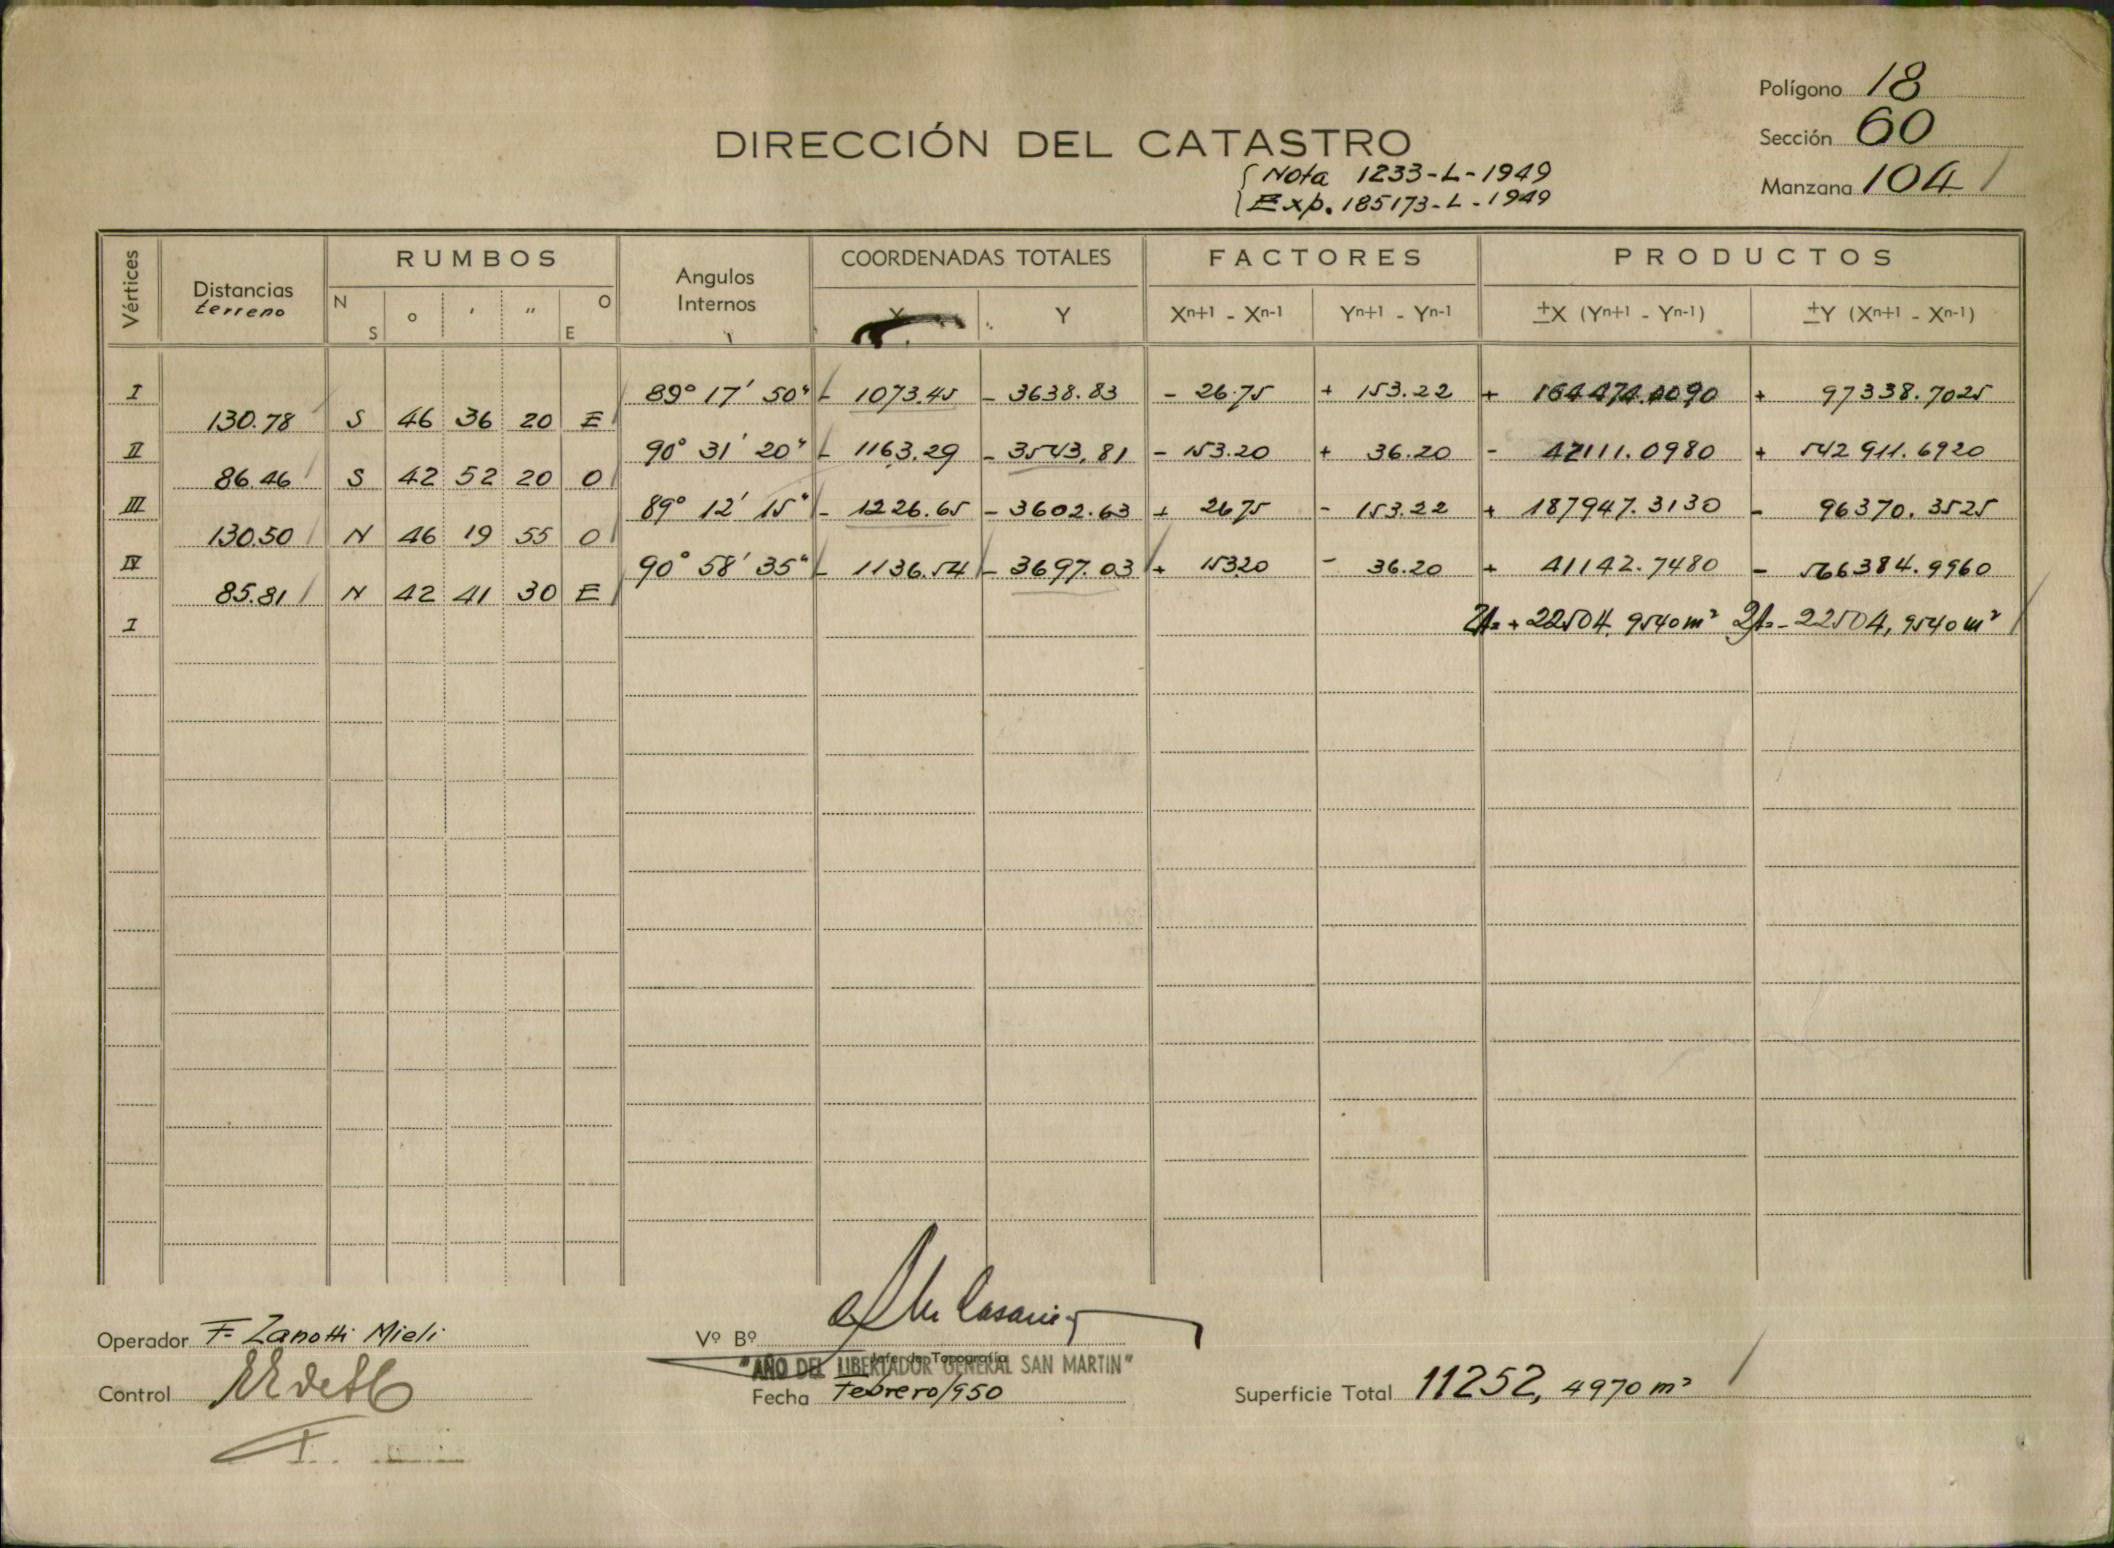 Polígono 18
DIRECCIÓN DEL CATASTRO
Sección 60
{ Nota 1233-L-1949
Manzana 104
{ Exp. 185173-L-1949
Vértices
Distancias
terreno
RUMBOS
N S o ' " O E
Angulos
Internos
COORDENADAS TOTALES
X Y
FACTORES
Xn+1 - Xn-1 Yn+1 - Yn-1
PRODUCTOS
±X (Yn+1 - Yn-1) ±Y (Xn+1 - Xn-1)
I 89° 17' 50" - 1073.45 - 3638.83 - 26.75 + 153.22 + 164474.0090 + 97338.7025
130.78 S 46 36 20 E
II 90° 31' 20" - 1163.29 - 3543.81 - 153.20 + 36.20 - 42111.0980 + 542911.6920
86.46 S 42 52 20 O
III 89° 12' 15" - 1226.65 - 3602.63 + 26.75 - 153.22 + 187947.3130 - 96370.3525
130.50 N 46 19 55 O
IV 90° 58' 35" - 1136.54 - 3697.03 + 153.20 - 36.20 + 41142.7480 - 566384.9960
85.81 N 42 41 30 E
I 2A=+22504,9540m² 2A=-22504,9540m²
Operador F. Zanotti Mieli
Vº Bº
Jefe de Topografía
"AÑO DEL LIBERTADOR GENERAL SAN MARTIN"
Control
Fecha Febrero/950
Superficie Total 11252,4970m²